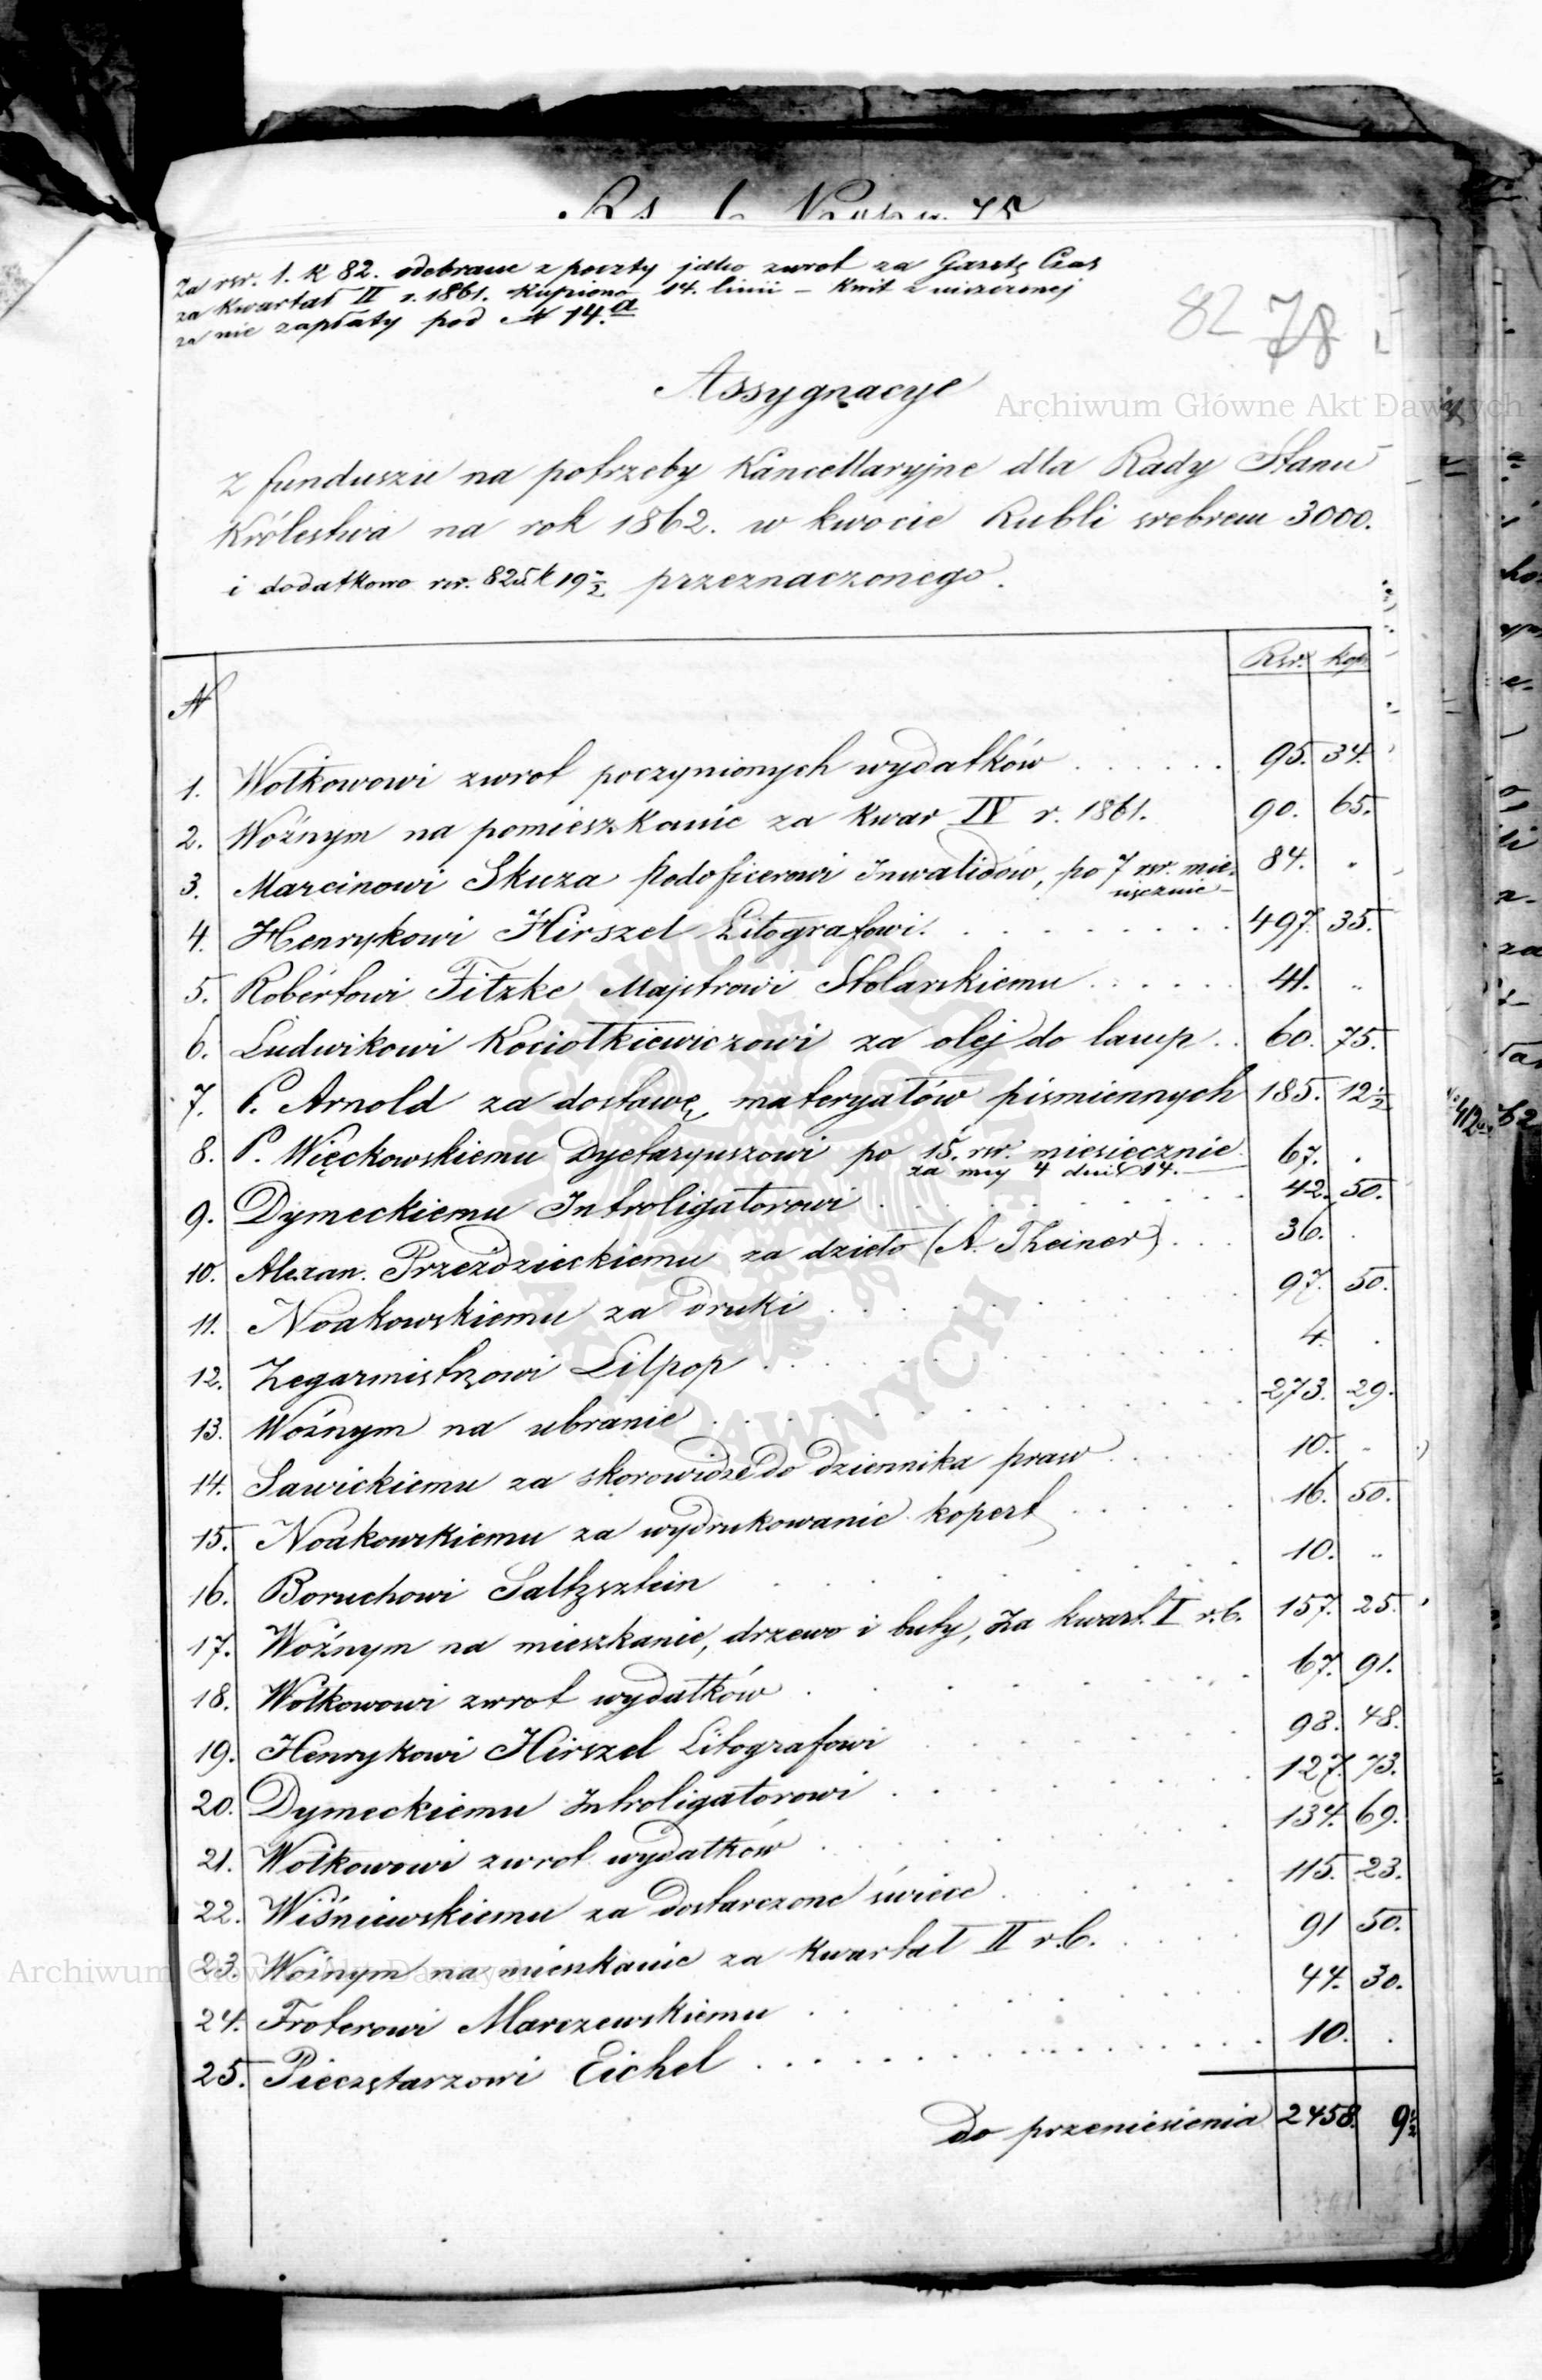 Za rsr. 1. k 82. odebrane z poczty jako zwrot za Gazetę Czas
za kwartał II r. 1861. kupiono 14. linii – kwit z uiszczonej
za nie zapłaty pod № 14.a
82 78
Assygnacye
Archiwum Główne Akt Dawnych
z funduszu na potrzeby Kancellaryjne dla Rady Stanu
Królestwa na rok 1862. w kwocie Rubli srebrem 3000.
i dodatkowo rsr. 825. k 19 1/2 przeznaczonego.
№ Rsr. kop.
1. Wołkowowi zwrot poczynionych wydatków 95. 34.
2. Woźnym na pomieszkanie za kwar IV r. 1861. 90. 65.
3. Marcinowi Skuza Podoficerowi Inwalidów, po 7 rsr. mie-
sięcznie 84. "
4. Henrykowi Hirszel Litografowi. 497. 35.
5. Robertowi Fitzke Majstrowi Stolarskiemu 41. "
6. Ludwikowi Kociołkiewiczowi za olej do lamp 60. 75.
7. P. Arnold za dostawę materyałów piśmiennych 185. 12 1/2
8. P. Więckowskiemu Dyetaryuszowi po 15. rsr. miesięcznie 67. .
za mcy 4 dni 14.
9. Dymeckiemu Introligatorowi 42. 50.
10. Alexan. Przezdzieckiemu za dzieło (A. Theiner) 36. .
11. Noakowskiemu za druki 97. 50.
12. Zegarmistrzowi Lilpop 4. .
13. Woźnym na ubranie 273. 29.
14. Sawickiemu za skorowidze do dziennika praw 10. "
15. Noakowskiemu za wydrukowanie kopert 16. 50.
16. Boruchowi Saltzsztein 10. "
17. Woźnym na mieszkanie, drzewo i buty, za kwart. I r.b. 157. 25.
18. Wołkowowi zwrot wydatków 67. 91.
19. Henrykowi Hirszel Litografowi 98. 48.
20. Dymeckiemu Introligatorowi 127. 73.
21. Wołkowowi zwrot wydatków 134. 69.
22. Wiśniewskiemu za dostarczone świece 115. 23.
23. Woźnym na mieszkanie za kwartał II r.b. 91 50.
Archiwum Główne Akt Dawnych
24. Froterowi Marczewskiemu 44. 30.
25. Pieczętarzowi Eichel 10. .
Do przeniesienia 2458. 9 1/2